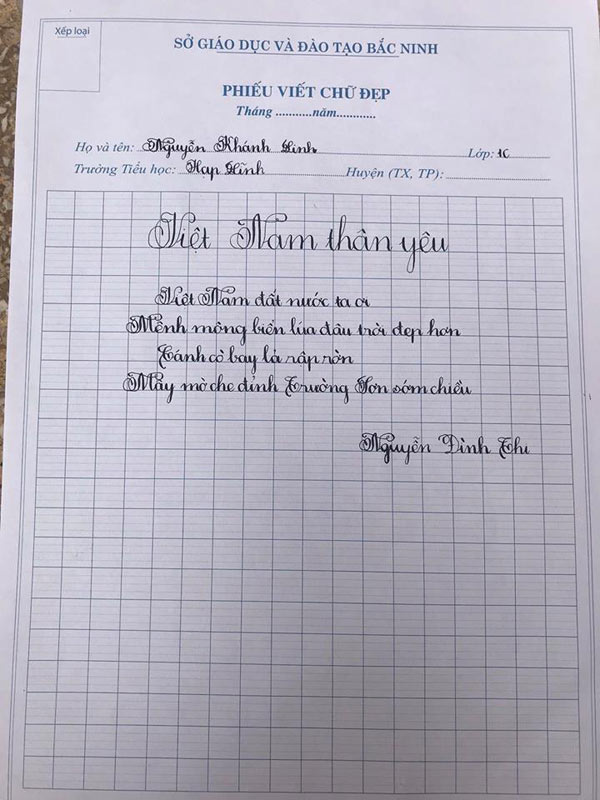 Xếp loại
SỞ GIÁO DỤC VÀ ĐÀO TẠO BẮC NINH
PHIẾU VIẾT CHỮ ĐẸP
Tháng ...........năm............
Họ và tên: Nguyễn Khánh Linh Lớp: 1C
Trường Tiểu học: Hạp Lĩnh Huyện (TX, TP):
Việt Nam thân yêu
Việt Nam đất nước ta ơi
Mênh mông biển lúa đâu trời đẹp hơn
Cánh cò bay lả rập rờn
Mây mờ che đỉnh Trường Sơn sớm chiều
Nguyễn Đình Thi